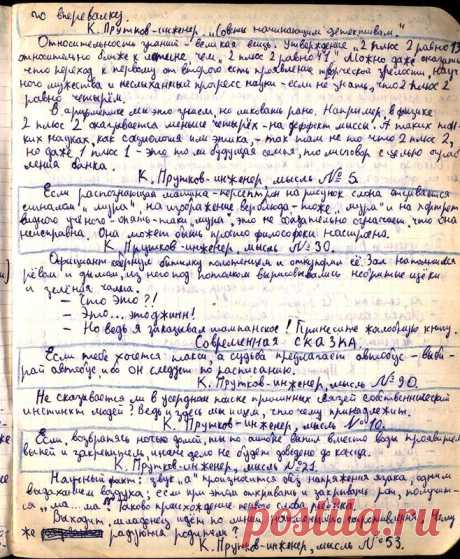 по вперевалку.
К. Прутков-инженер. „Советы начинающим детективам."
Относительность знаний - великая вещь. Утверждение „2 плюс 2 равно 13"
относительно ближе к истине, чем „2 плюс 2 равно 41". Можно даже сказать,
что переход к первому от второго есть проявление творческой зрелости, науч-
ного мужества и неслыханный прогресс науки - если не знать, что 2 плюс 2
равно четырём.
В арифметике мы это знаем, но ликовать рано. Например в физике
2 плюс 2 оказывается меньше четырёх - на дефект массы. А в таких тон-
ких науках, как социология или этика, - так там не то что 2 плюс 2,
но даже 1 плюс 1 - это то ли будущая семья, то ли сговор с целью ограб-
ления банка.
К. Прутков-инженер, мысль № 5.
Если распознающая машина-персептрон на рисунок слона отзывается
сигналом „мура", на изображение верблюда - тоже „мура" и на портрет
видного учёного - опять-таки „мура", это не обязательно означает, что она
неисправна. Она может быть просто философски настроена.
К. Прутков-инженер, мысль № 30.
Официант обернул бутылку полотенцем и откупорил её. Зал наполнился
рёвом и дымом, из него под потолком вырисовывались небритые щёки
и зелёная чалма.
- Что это?!
- Это... это джинн!
- Но ведь я заказывал шампанское! Принесите жалобную книгу.
Современная сказка.
Если тебе хочется такси, а судьба предлагает автобус - выби-
рай автобус, ибо он следует по расписанию.
К. Прутков-инженер, мысль № 90.
Не сказывается ли в усердном поиске причинных связей собственнический
инстинкт людей? Ведь и здесь мы ищем, что чему принадлежит.
К. Прутков-инженер, мысль № 10.
Если, возвратясь ночью домой, ты по ошибке выпил вместо воды проявитель,
выпей и закрепитель, иначе дело не будет доведено до конца.
К. Прутков-инженер, мысль № 21.
Научный факт: звук „а" произносится без напряжения языка, одним
выдыханием воздуха; если при этом открывать и закрывать рот, получит-
ся „ма... ма". Таково происхождение первого слова ребёнка.
Выходит, младенец идёт по линии наименьшего сопротивления. Чему
же радуются родители?
К. Прутков-инженер, мысль № 53.